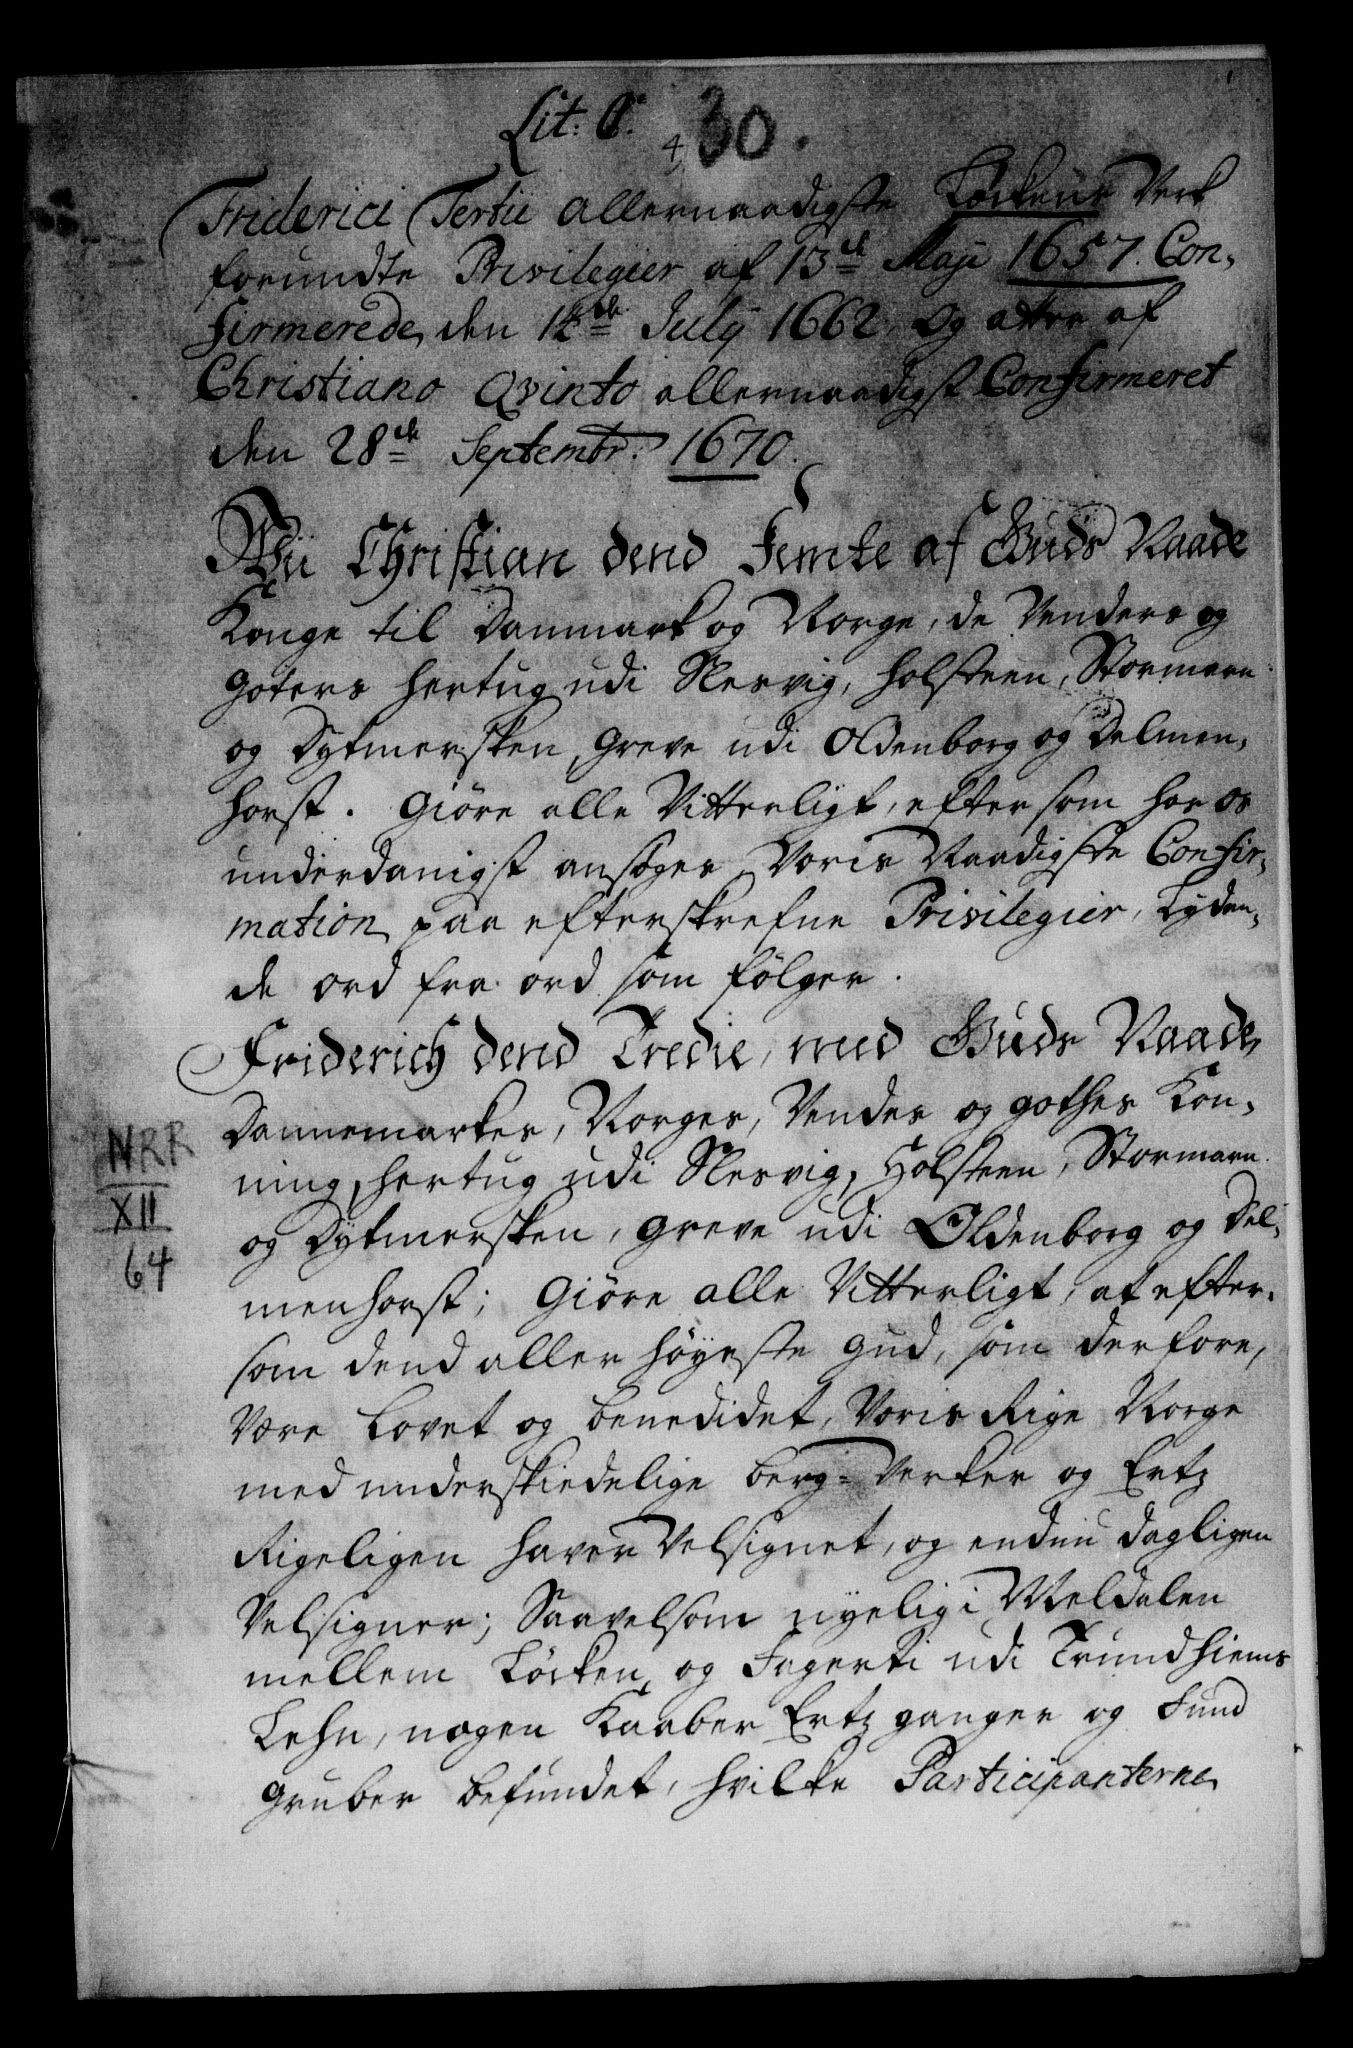 Lit: C. 30.
4
Friderici Tertii allernaadigste Löckens Verk
forundte Privilegier af 13de Maji 1657. Con-
firmerede den 12de Julÿ 1662, og atter af
Christiano Qvinto allernaadigst Confirmeret
den 28de Septembr: 1670.
Wii Christian dend Femte af Guds Naade
Konge til Danmark og Norge, de Venders og
Goters hertug udi Slesvig, holsteen, Stormarn
og Dytmersken, Greve udi Oldenborg og Delmen-
horst. Giöre alle Vitterligt, eftersom hos os
underdanigst ansöges Voris Naadigste Confir-
mation paa efterskrefne Privilegier, Lyden-
de ord fra ord som fölger.
Friderich dend Tredie, med Guds Naade,
Dannemarkes, Norges, Vendes og gothes Kon-
ning, hertug udi Slesvig, Holsteen, Stormarn
og Dytmersken, greve udi Oldenborg og Del-
menhorst; Giöre alle Vitterligt, at efter-
som dend aller höyeste Gud, som derfore,
Være Lovet og benedidet, Voris Rige Norge
med underskiedelige berg-Verker og Ertz
Rigeligen haver Velsignet, og endnu dagligen
Velsigner; Saavelsom nyelig i Meldalen
mellem Löcken og Fagerli udi Trundhiems
Lehn, nogen Kaaber Ertz ganger og Fund
gruber befundet, hvilke Participanterne
NRR
XII
64